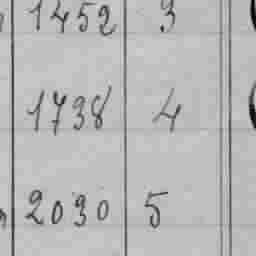 1452 3
1738 4
2030 5